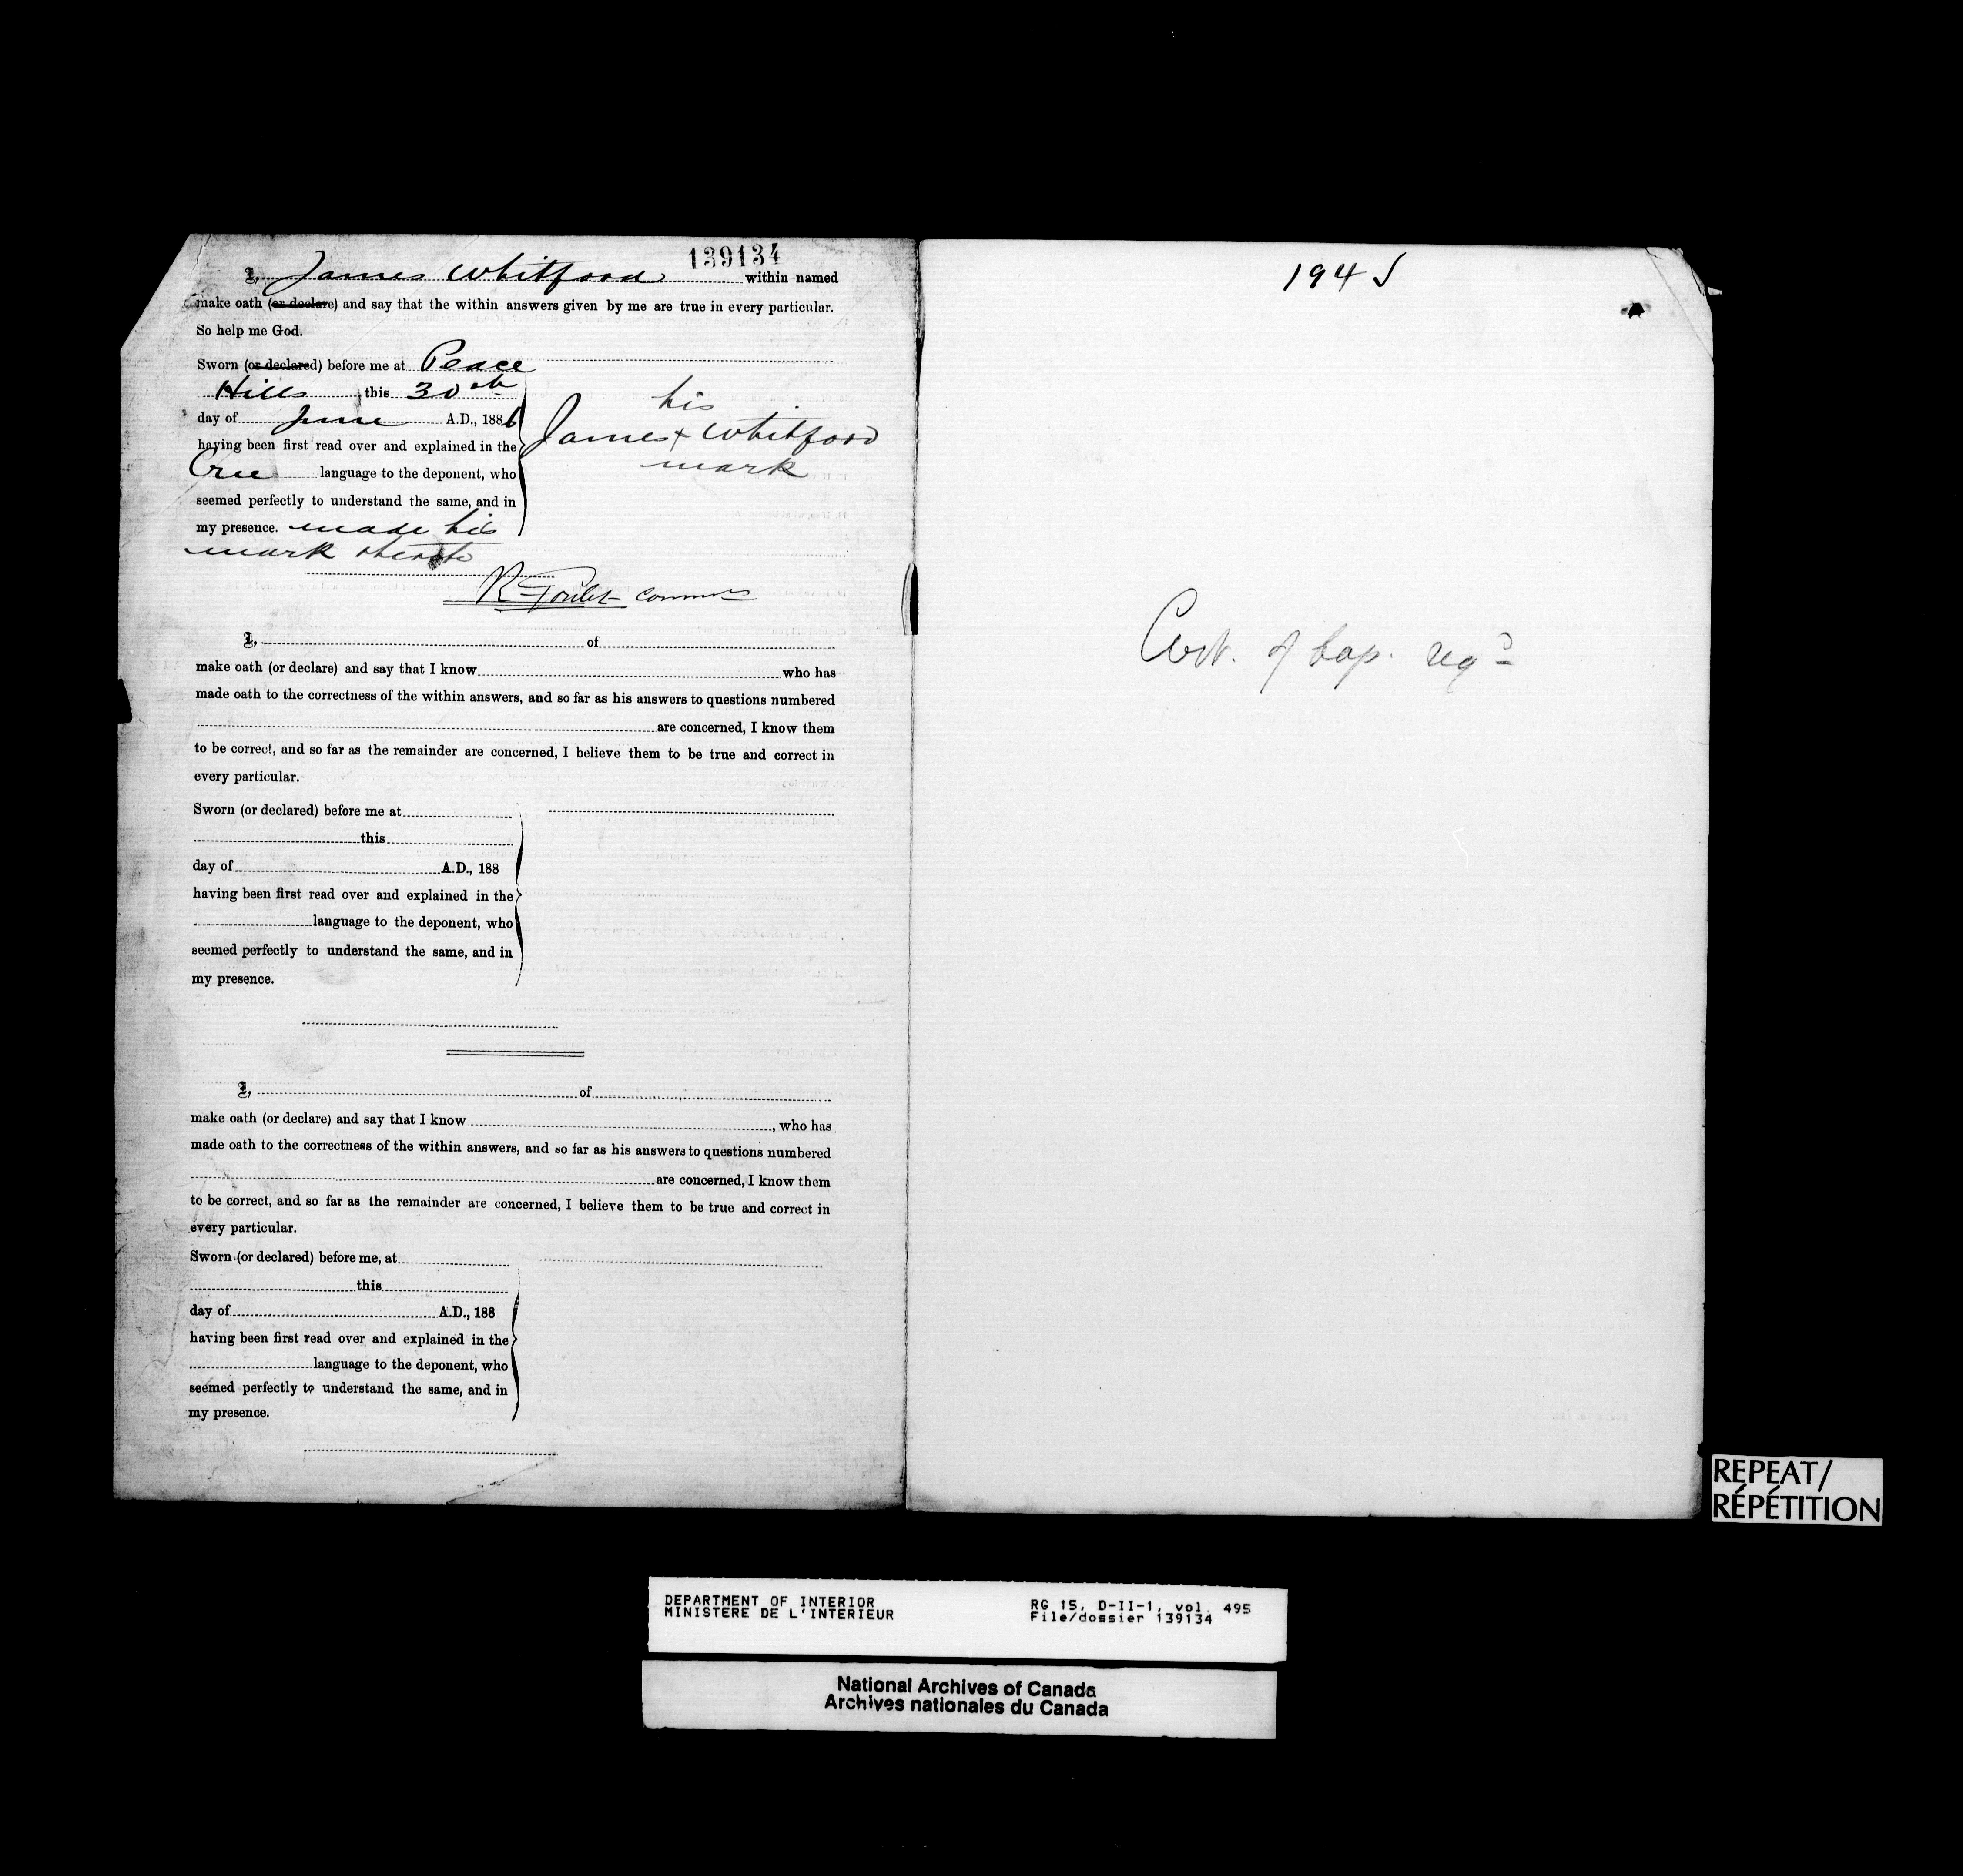 139134
I, James Whitford within named
make oath (or declare) and say that the within answers given by me are true in every particular.
So help me God.
Sworn (or declared) before me at Peace
Hills this 30th
day of June A.D., 1886
having been first read over and explained in the
Cree language to the deponent, who
seemed perfectly to understand the same, and in
my presence. made his
mark thereto
his
James + Whitford
mark
R Goulet
I, of
make oath (or declare) and say that I know who has
made oath to the correctness of the within answers, and so far as his answers to questions numbered
are concerned, I know them
to be correct, and so far as the remainder are concerned, I believe them to be true and correct in
every particular.
Sworn (or declared) before me at
this
day of A.D., 188
having been first read over and explained in the
language to the deponent, who
seemed perfectly to understand the same, and in
my presence.
I, of
make oath (or declare) and say that I know , who has
made oath to the correctness of the within answers, and so far as his answers to questions numbered
are concerned, I know them
to be correct, and so far as the remainder are concerned, I believe them to be true and correct in
every particular.
Sworn (or declared) before me, at
this
day of A.D., 188
having been first read over and explained in the
language to the deponent, who
seemed perfectly to understand the same, and in
my presence.
194
Cert. of bap. reqd
REPEAT/
RÉPÉTITION
DEPARTMENT OF INTERIOR RG 15, D-II-1, vol. 495
MINISTERE DE L'INTERIEUR File/dossier 139134
National Archives of Canada
Archives nationales du Canada